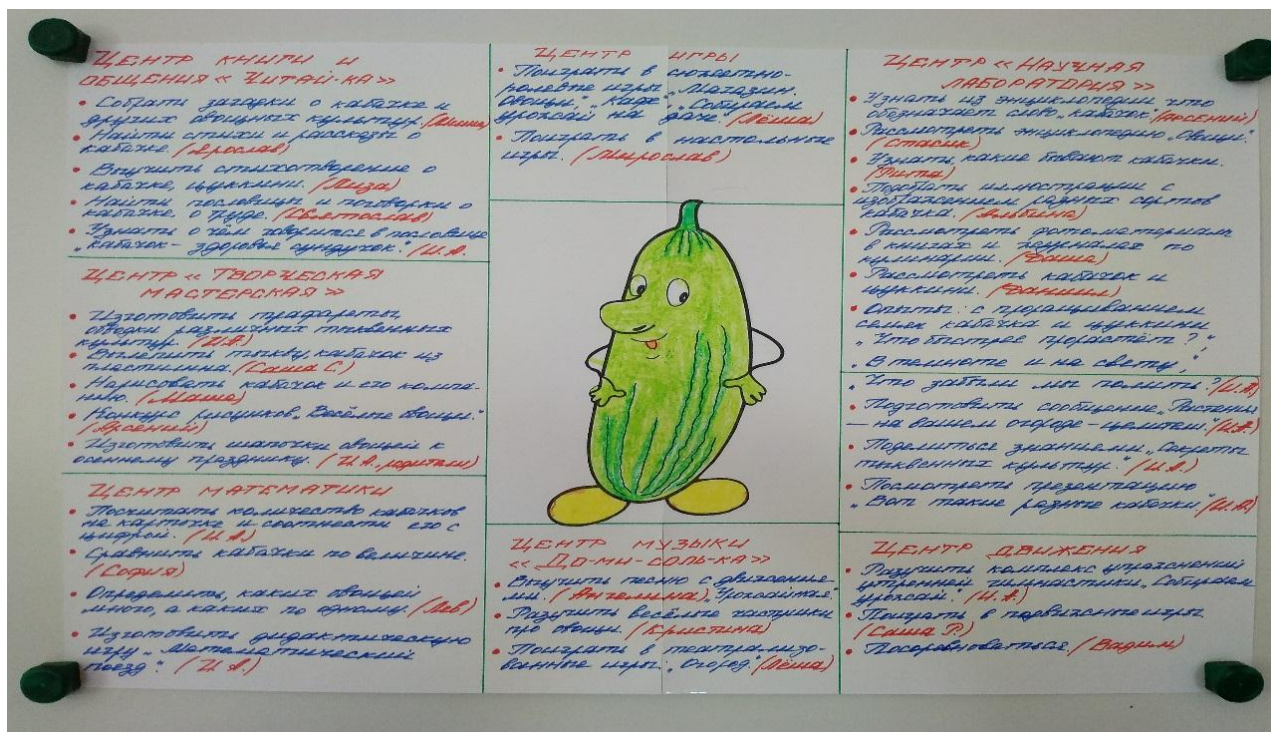 Центр книги и
общения «Читай-ка»
• Собрать загадки о кабачке и
других овощных культур. (Миша)
• Найти стихи и рассказы о
кабачке. (Ярослав)
• Выучить стихотворение о
кабачке, цуккини. (Лиза)
• Найти пословицы и поговорки о
кабачке, о труде. (Святослав)
• Узнать о чём говорится в пословице
„Кабачок – здоровья сундучок." (И.А.
Центр «Творческая
мастерская»
• Изготовить трафареты,
обводки различных тыквенных
культур. (И.А)
• Вылепить тыкву, кабачок из
пластилина. (Саша С.)
• Нарисовать кабачок и его компа-
нию. (Маша)
• Конкурс рисунков „Весёлые овощи."
(Арсений)
• Изготовить шапочки овощей к
осеннему празднику. (И.А., родители)
Центр математики
• Посчитать количество кабачков
на карточке и соотнести его с
цифрой. (И.А.)
• Сравнить кабачки по величине.
(София)
• Определить, каких овощей
много, а каких по одному. (Лев)
• Изготовить дидактическую
игру „Математический
поезд". (И.А.)
Центр игры
• Поиграть в сюжетно-
ролевые игры „Магазин.
Овощи", „Кафе", „Собираем
урожай на даче." (Лёша)
• Поиграть в настольные
игры. (Мирослав)
Центр музыки
«До-ми-соль-ка»
• Выучить песню с движения-
ми. (Ангелина) „Урожайная"
• Разучить весёлые частушки
про овощи. (Кристина)
• Поиграть в театрализо-
ванные игры: „Огород." (Лёша)
Центр «Научная
лаборатория»
• Узнать из энциклопедии что
обозначает слово „кабачок" (Арсений)
• Рассмотреть энциклопедию „Овощи".
(Стасик)
• Узнать, какие бывают кабачки.
(Рита)
• Подобрать иллюстрации с
изображением разных сортов
кабачка. (Альбина)
• Рассмотреть фотоматериал
в книгах и журналах по
кулинарии. (Даша)
• Рассмотреть кабачок и
цуккини. (Даниил)
• Опыты: с проращиванием
семян кабачка и цуккини
„Что быстрее прорастёт?",
„В темноте и на свету",
„Что забыли мы полить?" (И.А.)
• Подготовить сообщение „Растения
– на вашем огороде – целители." (И.А.)
• Поделиться знанием „Секреты
тыквенных культур." (И.А.)
• Посмотреть презентацию
„Вот такие разные кабачки" (И.А.)
Центр движения
• Разучить комплекс упражнений
утренней гимнастики „Собираем
урожай". (И.А.)
• Поиграть в подвижные игры
(Саша Р.)
• Посоревноваться. (Вадим)